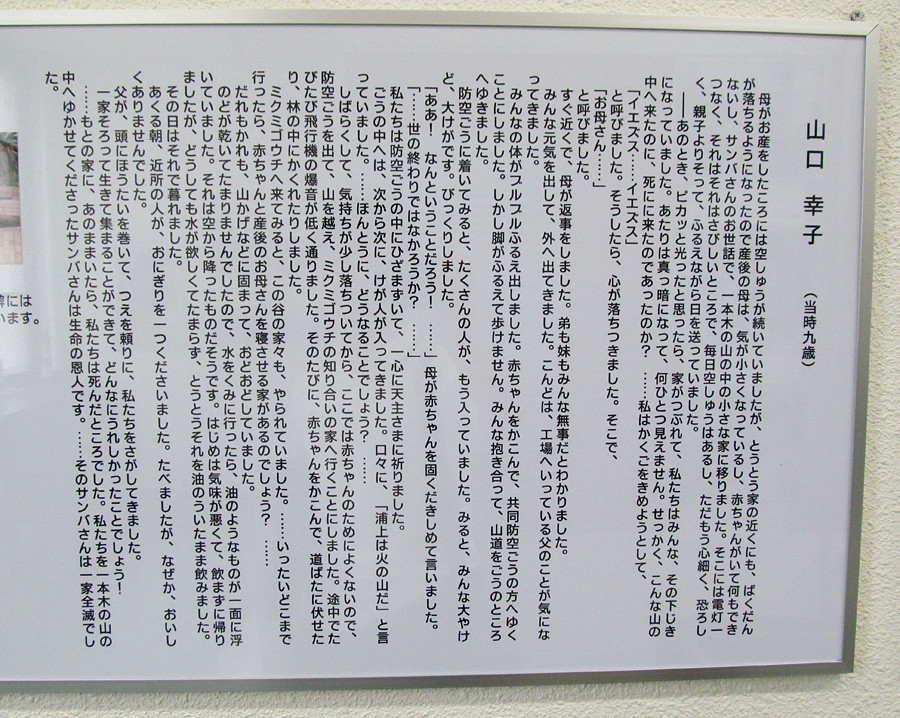 山口 幸子 （当時九歳）
母がお産をしたころには空しゅうが続いていましたが、とうとう家の近くにも、ばくだん
が落ちるようになったので産後の母は、気が小さくなっているし、赤ちゃんがいて何もでき
ないし、サンバさんのお世話で、一本木の山の中の小さな家に移りました。そこには電灯一
つなく、それはそれはさびしいところで、毎日空しゅうはあるし、ただもう心細く、恐ろし
く、親子よりそって、ふるえながら日を送っていました。
――あのとき、ピカッと光ったと思ったら、家がつぶれて、私たちはみんな、その下じき
になっていました。あたりは真っ暗になって、何ひとつ見えません。せっかく、こんな山の
中へ来たのに、死にに来たのであったのか？ ……私はかくごをきめようとして、
「イエズス……イエズス」
と呼びました。そうしたら、心が落ちつきました。そこで、
「お母さん……」
と呼びました。
すぐ近くで、母が返事をしました。弟も妹もみんな無事だとわかりました。
みんな元気を出して、外へ出てきました。こんどは、工場へいっている父のことが気にな
ってきました。
みんなの体がブルブルふるえ出しました。赤ちゃんをかこんで、共同防空ごうの方へゆく
ことにしました。しかし脚がふるえて歩けません。みんな抱き合って、山道をごうのところ
へゆきました。
防空ごうに着いてみると、たくさんの人が、もう入っていました。みると、みんな大やけ
ど、大けがです。びっくりしました。
「ああ！ なんということだろう！ ……」母が赤ちゃんを固くだきしめて言いました。
「……世の終わりではなかろうか？ ……」
私たちは防空ごうの中にひざまずいて、一心に天主さまに祈りました。
ごうの中へは、次から次に、けが人が入ってきました。口々に、「浦上は火の山だ」と言
っていました。……ほんとうに、どうなることでしょう？ ……
しばらくして、気持ちが少し落ちついてから、ここでは赤ちゃんのためによくないので、
防空ごうを出て、山を越え、ミクミゴウチの知り合いの家へ行くことにしました。途中でた
びたび飛行機の爆音が低く通りました。そのたびに、赤ちゃんをかこんで、道ばたに伏せた
り、林の中にかくれたりしました。
ミクミゴウチへ来てみると、この谷の家々も、やられていました。……いったいどこまで
行ったら、赤ちゃんと産後のお母さんを寝させる家があるのでしょう？ ……
だれもかれも、山かげなどに固まって、おどおどしていました。
のどが乾いてたまりませんでしたので、水をくみに行ったら、油のようなものが一面に浮
いていました。それは空から降ったものだそうです。はじめは気味が悪くて、飲まずに帰り
ましたが、どうしても水が欲しくてたまらず、とうとうそれを油のういたまま飲みました。
その日はそれで暮れました。
あくる朝、近所の人が、おにぎりを一つくださいました。たべましたが、なぜか、おいし
くありませんでした。
父が、頭にほうたいを巻いて、つえを頼りに、私たちをさがしてきました。
一家そろって生きて集まることができて、どんなにうれしかったことでしょう！
……もとの家に、あのままいたら、私たちは死んだところでした。私たちを一本木の山の
中へゆかせてくださったサンバさんは生命の恩人です。……そのサンバさんは一家全滅でし
た。
には
います。